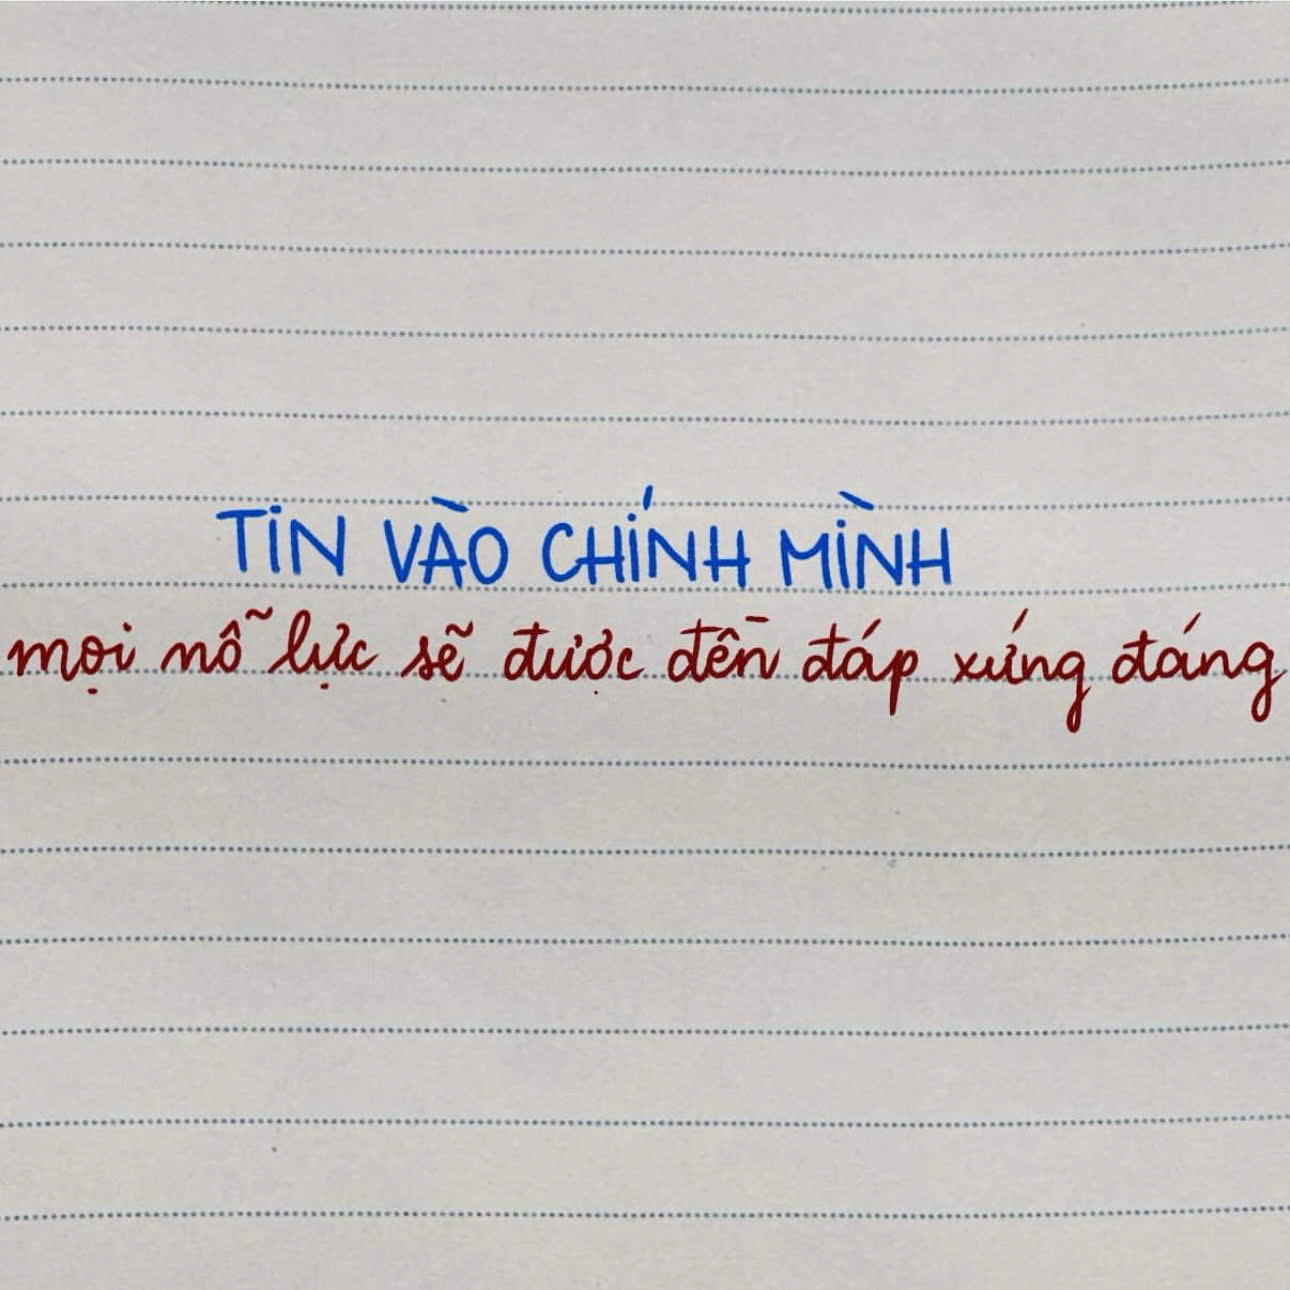 TIN VÀO CHÍNH MÌNH
mọi nỗ lực sẽ được đền đáp xứng đáng